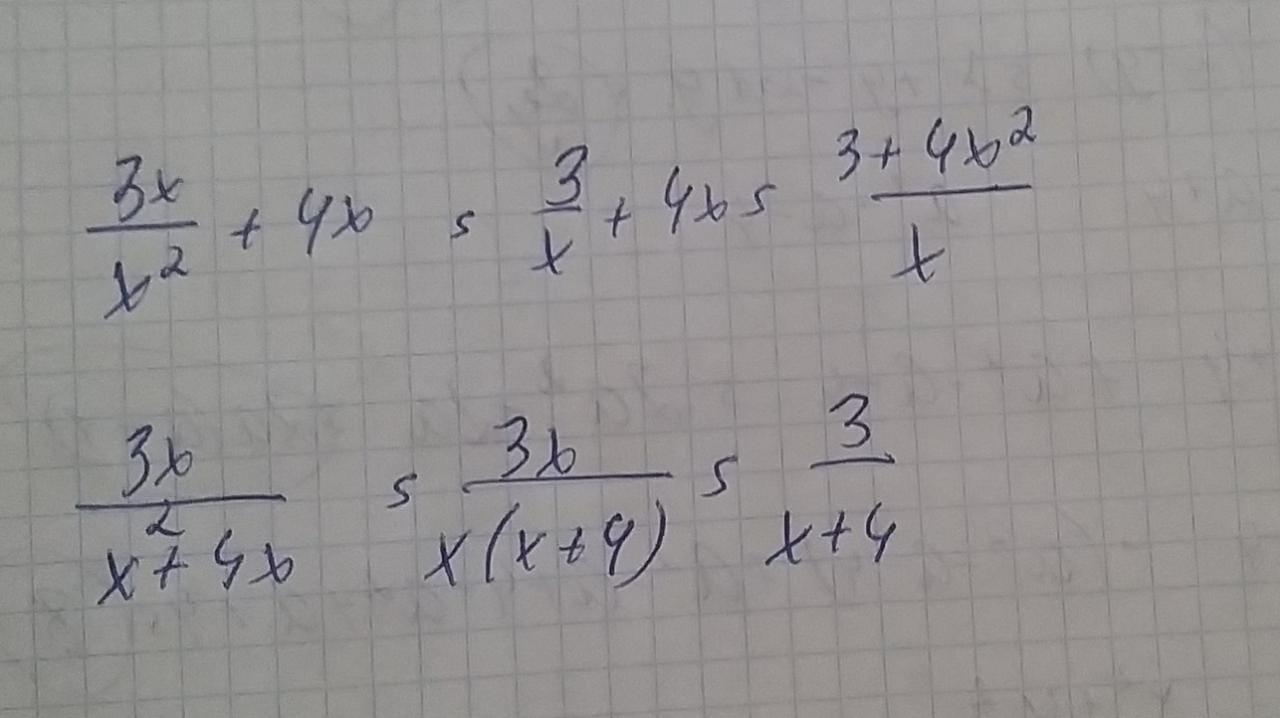 3x/x² + 4x = 3/x + 4x = (3 + 4x²)/x
3x/(x² + 4x) = 3x/(x(x+4)) = 3/(x+4)